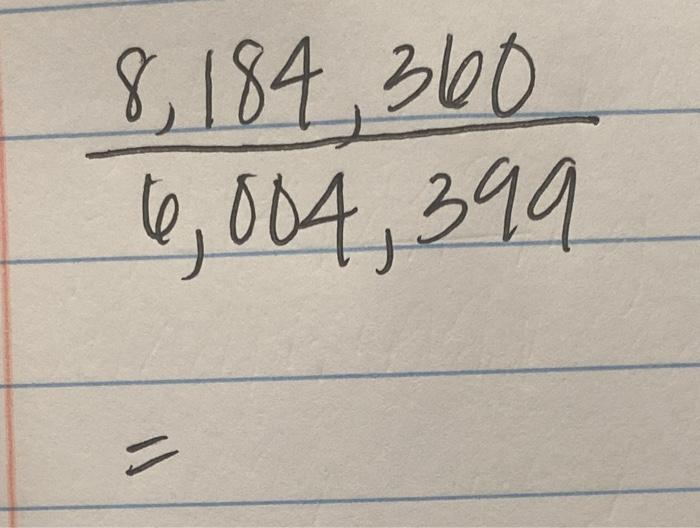 8,184,360
6,004,399
=